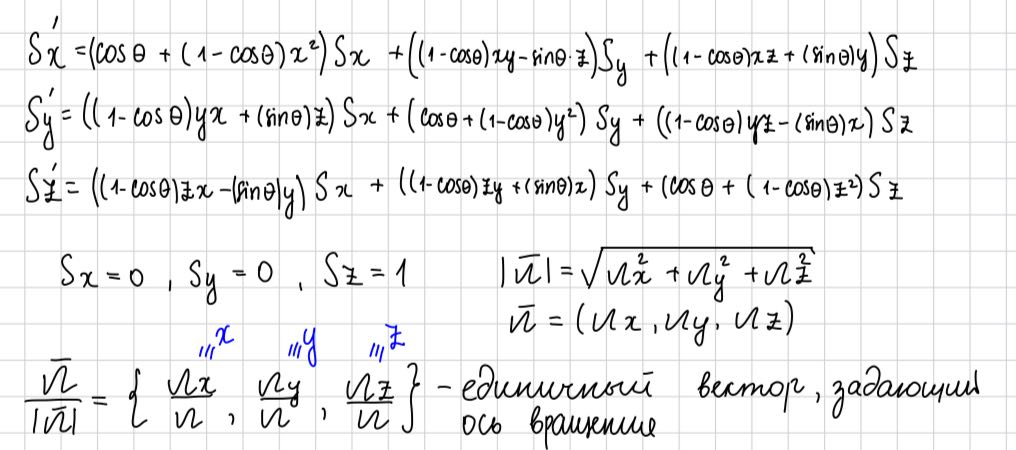 Sx' = (cos θ + (1 - cosθ) x²) Sx + ((1 - cosθ) xy - sinθ · z) Sy + ((1 - cosθ) xz + (sinθ) y) Sz
Sy' = ((1 - cos θ) yx + (sinθ) z) Sx + (cosθ + (1 - cosθ) y²) Sy + ((1 - cosθ) yz - (sinθ) x) Sz
Sz' = ((1 - cosθ) zx - (sinθ) y) Sx + ((1 - cosθ) zy + (sinθ) x) Sy + (cos θ + (1 - cosθ) z²) Sz
Sx = 0 , Sy = 0 , Sz = 1 |n̄| = √(nx² + ny² + nz²)
n̄ = (nx, ny, nz)
x y z
n̄/|n̄| = { nx/n , ny/n , nz/n } - единичный вектор, задающий
ось вращение